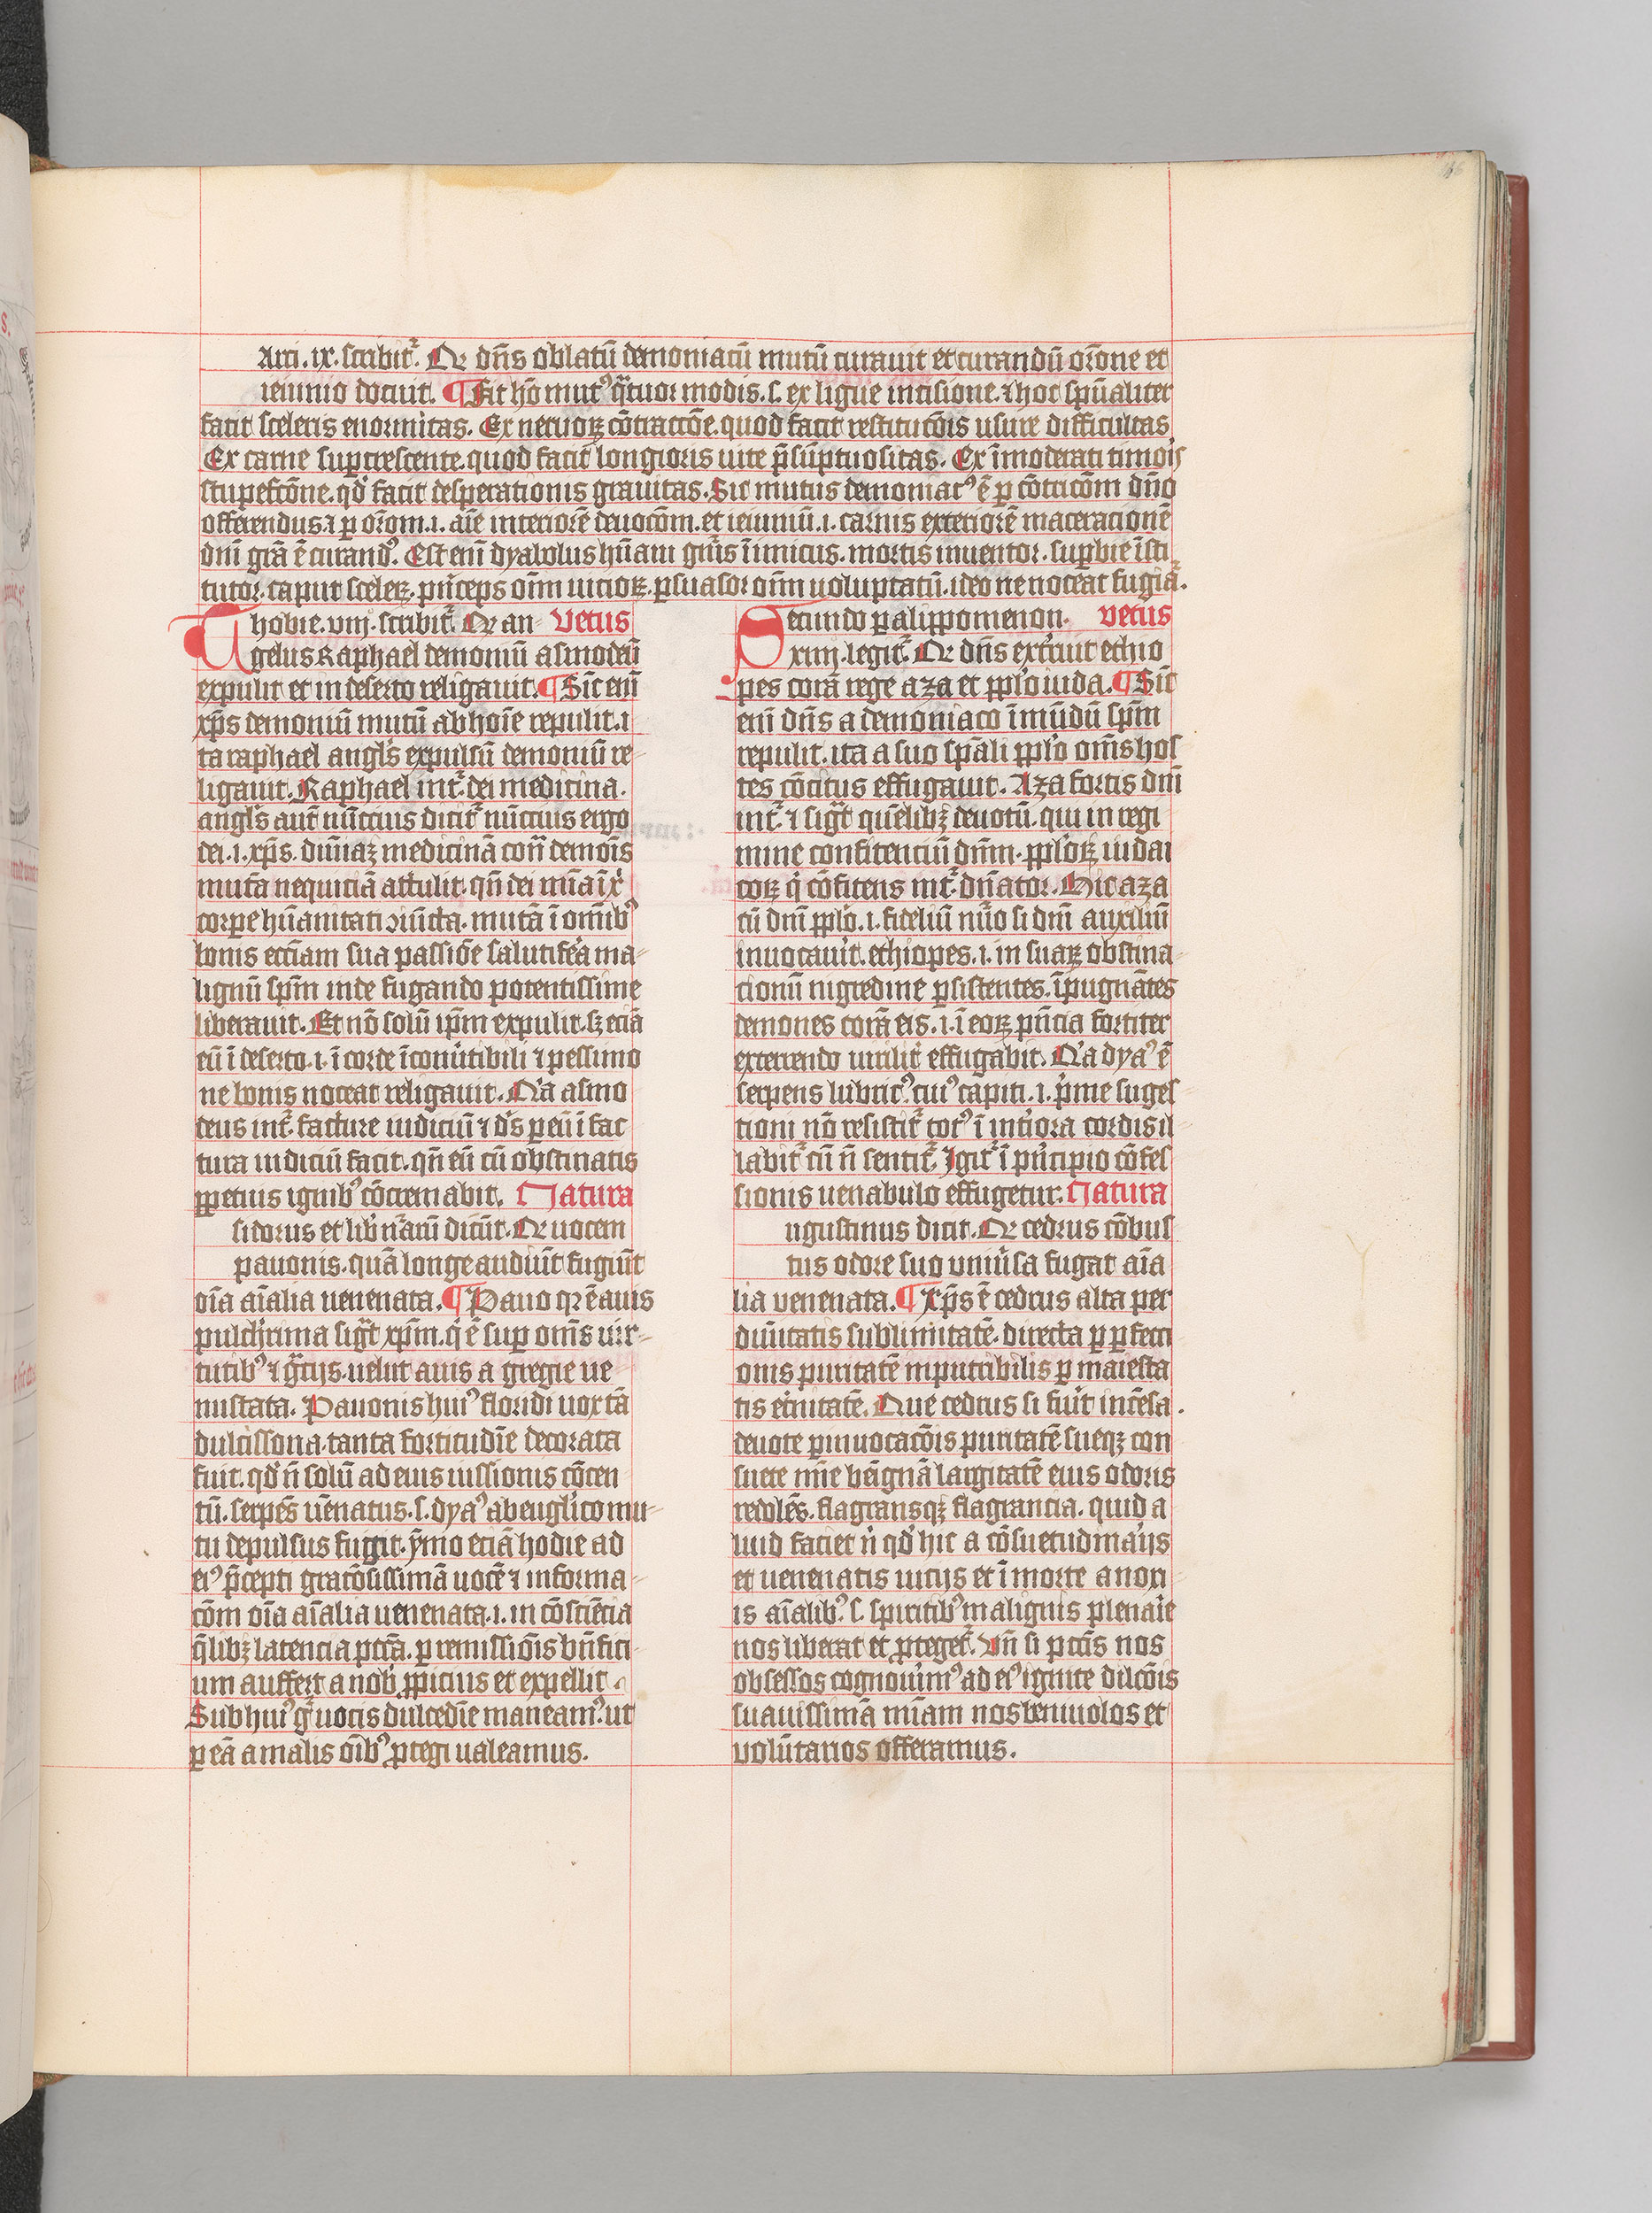 Arci . ix . scribit᷑ . Qr dn̄s oblatū demoniacū mutū curauit et curandū or̄one et
ieiunio docuit . ¶ Fit hō mut⁹ q̄tuor modis . s . ex ligue incisione . ⁊ hoc spūaliter
facit sceleris enormitas . Ex neruoꝝ cōtractōe . quod facit restitucōis usure difficultas
Ex carne suꝑcrescente . quod facit longioris uite p̄sūptuositas . Ex īmoderati timoris
stupefctōne . qd̓ facit desperationis grauitas . Sic mutus demoniac⁹ ē ꝑ cōtricōm dn̄o
offerendus . ⁊ ꝑ or̄om . i . aīe interiorē deuocōm . et ieiuniū . i . carnis exteriorē maceracionē
dn̄i grā ē curand⁹ . Est enī dyabolus hūam gn̄is īimicus . mortis inuentor . suꝑbie īsti
tutor . caput sceleꝝ . prīceps oīm uicioꝝ . ꝑsuasor oīm uoluptatū . ideo ne noceat fugiat᷑ .
Thobie . viij . scribit᷑ . Qr an Vetus
gelus Raphael demoniū asmodeū
expulit et in deserto religauit . ¶ Sic enī
xp̄s demoniū mutū ab hoīe repulit . i
ta raphael angl̓s expulsū demoniū re-
ligauit . Raphael īnt᷑ . dei medicina .
angl̓s aūt nūccius dicit᷑ nūccius ergo
dei . i . xp̄s . diuīaꝫ medicinā cont̄ demōis
muta nequiciā attulit . qn̄ dei mīa ī xp̄i
corpe hūanitati ꝯiūcta . mutā ī omīb⁹
bonis eccīam sua passiōe salutifera ma-
lignū spm̄ inde fugando potentissime
liberauit . Et nō solū ipm̄ expulit . sꝫ eciā
eū ī deserto . i . ī corde īconūtibili ⁊ pessimo
ne bonis noceat religauit . Na asmo
deus int᷑ . facture iudiciū ⁊ d̓s ꝑ eū ī fac
tura iudiciū facit . qn̄ eū cū obstinatis
ꝑpetuis ignib⁹ cōcremabit . Natura
sidorus et lib̓ nr̄arū dicūt . Qr uocem
pauonis . quā longe audiūt fugiūt
oīa aīalia uenenata . ¶ Pauo qr ē auis
pulch̓rima sigt̄ xpm̄ . q̓ ē suꝑ omīs uir-
tutib⁹ ⁊ gr̄cijs . uelut auis a gregie ue
nustata . Pauonis hui⁹ floridi uox tā
dulcissona . tanta fortitudīe decorata
fuit . qd̓ n̄ solū ad eius iussionis cōcen
tū . serpēs uēnatus . s . dya⁹ ab eugl̓ico mu-
tu depulsus fugit . ȳmo eciā hodie ad
ei⁹ p̄cepti graciōsissimā uocē ⁊ informa-
cōm oīa aīalia uenenata . i . in cōsciēcia
q̄libꝫ latencia pctā . ꝑ remissiōis bn̄fici-
um auffert a nob̓ ꝓpicius et expellit .
Sub hui⁹ gͥ uocis dulcedīe maneam⁹ . ut
ꝑ eā a malis oīb⁹ ꝓtegi ualeamus .
Secundo ꝑalippomenon . Vetus
xiiij . legit᷑ . Qr dn̄s ext̓ruit ethio
pes corā rege aza et ppl̓o iuda . ¶ Sic
enī dn̄s a demoniaco īmūdū spm̄
repulit . ita a suo spāli ppl̓o om̄s hos
tes cōcitus effugauit . Aza fortis dn̄i
int᷑ . ⁊ sigt̄ quēlibꝫ deuotū . qui in regi
mine confitenciū dnm̄ . ppl̓oꝝ iudai
coꝝ q̓ cōfitens int᷑ . dn̄ator . Hic aza
cū dnī ppl̓o . i . fideliū nūo si dnī auxiliū
inuocauit . ethiopes . i . in suaꝝ obstina-
cionū nigredine ꝑsistentes . īpugnātes
demones corā eis . i . ī eoꝝ pn̄cia fortiter
exterrendo uirilit᷑ effugabit . Na dya⁹ ē
serpens lubric⁹ . cui⁹ capiti . i . p̓me suges
tioni nō resistit᷑ tot⁹ ī int̓iora cordis il
labit᷑ cū n̄ sentit᷑ . Igit᷑ ī prīcipio cōfes
sionis uenabulo effugetur . Natura
ugustinus dicit . Qr cedrus cōbus
tus odore suo vniūsa fugat aīa
lia venenata . ¶ Xp̄s ē cedrus alta per
diuītatis sublimitatē . directa ꝑ ꝑfecti
onis puritatē inputribilis ꝑ maiesta
tis et̓nitatē . Que cedrus si fūit incēsa .
deuote ꝑ inuocacōis puritatē sueqꝫ con
suete mīe bēignā largitatē eius odoris
redolēs . flagransqꝫ flagrancia . quid a
liud faciet n̓ qd̓ hic a cōsuetudinarijs
et uenenatis uicijs et ī morte a non
is aīalib⁹ . s . spiritib⁹ malignis plenarie
nos liberat et ꝓteget᷑ . Vn̄ si pctīs nos
obsessos cognouim⁹ ad ei⁹ ignite dilcōis
suauissimā mīam nos beniuolos et
volūtarios offeramus .